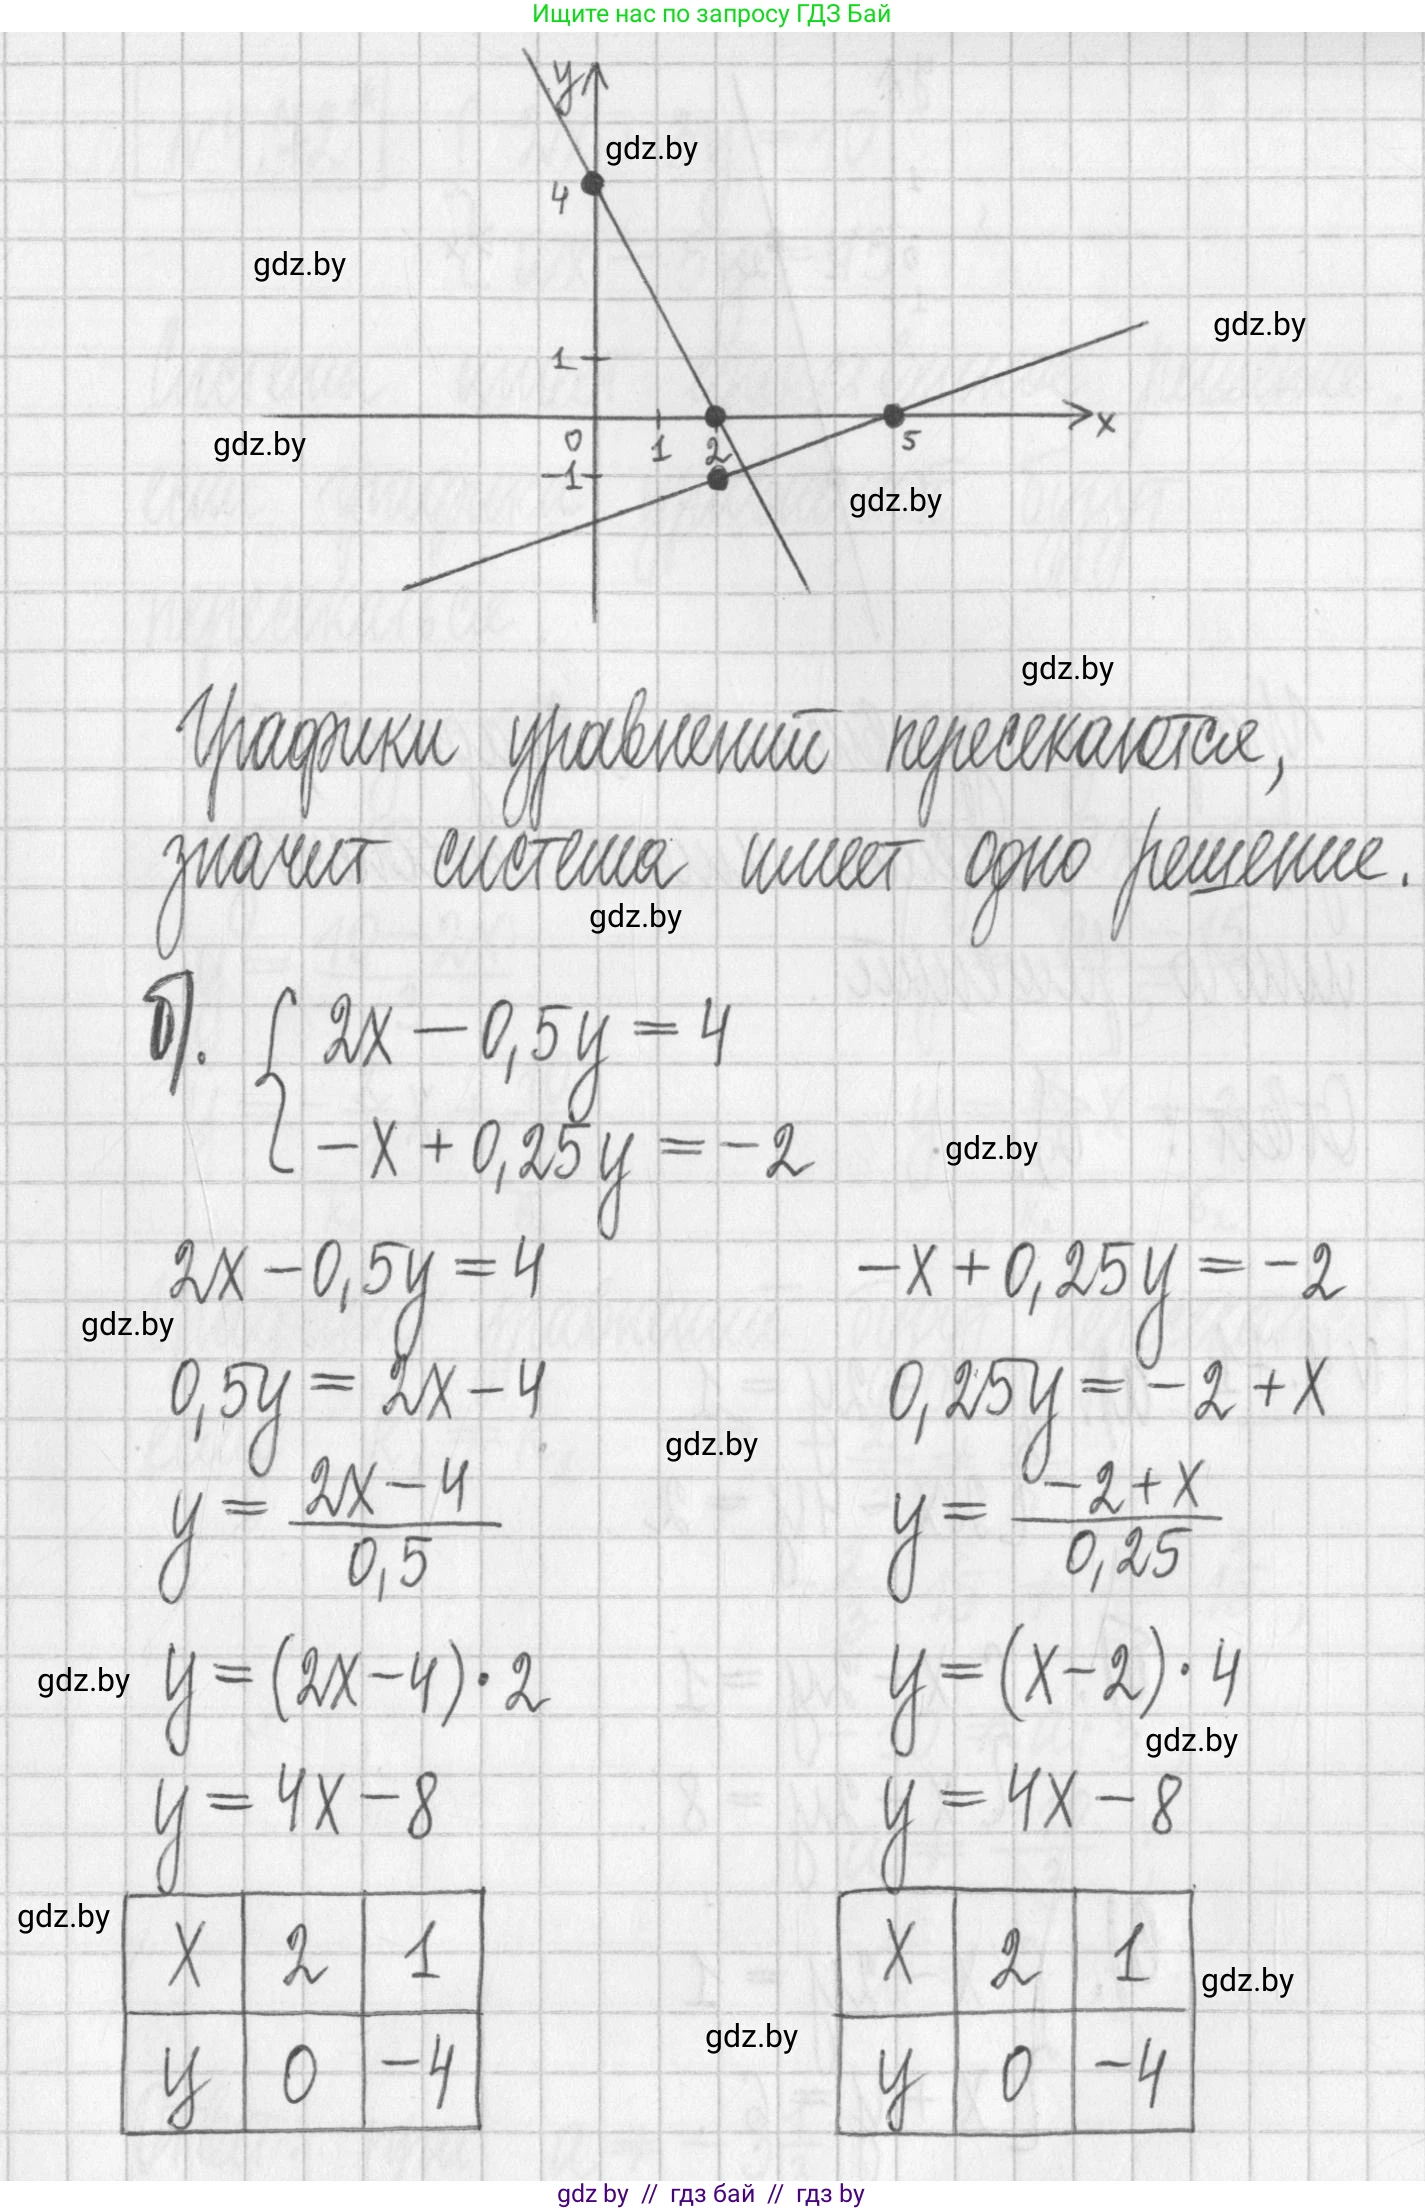 Ищите нас по запросу ГДЗ Бай
y
gdz.by
4
gdz.by
gdz.by
1
gdz.by
0 1 2 5 x
-1
gdz.by
gdz.by
Графики уравнений пересекаются,
значит система имеет одно решение.
gdz.by
б). { 2x - 0,5y = 4
-x + 0,25y = -2
gdz.by
2x - 0,5y = 4 -x + 0,25y = -2
gdz.by
0,5y = 2x - 4 0,25y = -2 + x
gdz.by
y = (2x - 4)/0,5 y = (-2 + x)/0,25
gdz.by y = (2x - 4) · 2 y = (x - 2) · 4
gdz.by
y = 4x - 8 y = 4x - 8
gdz.by
x 2 1 x 2 1
gdz.by
gdz.by
y 0 -4 y 0 -4
gdz by // гдз бай // гдз by